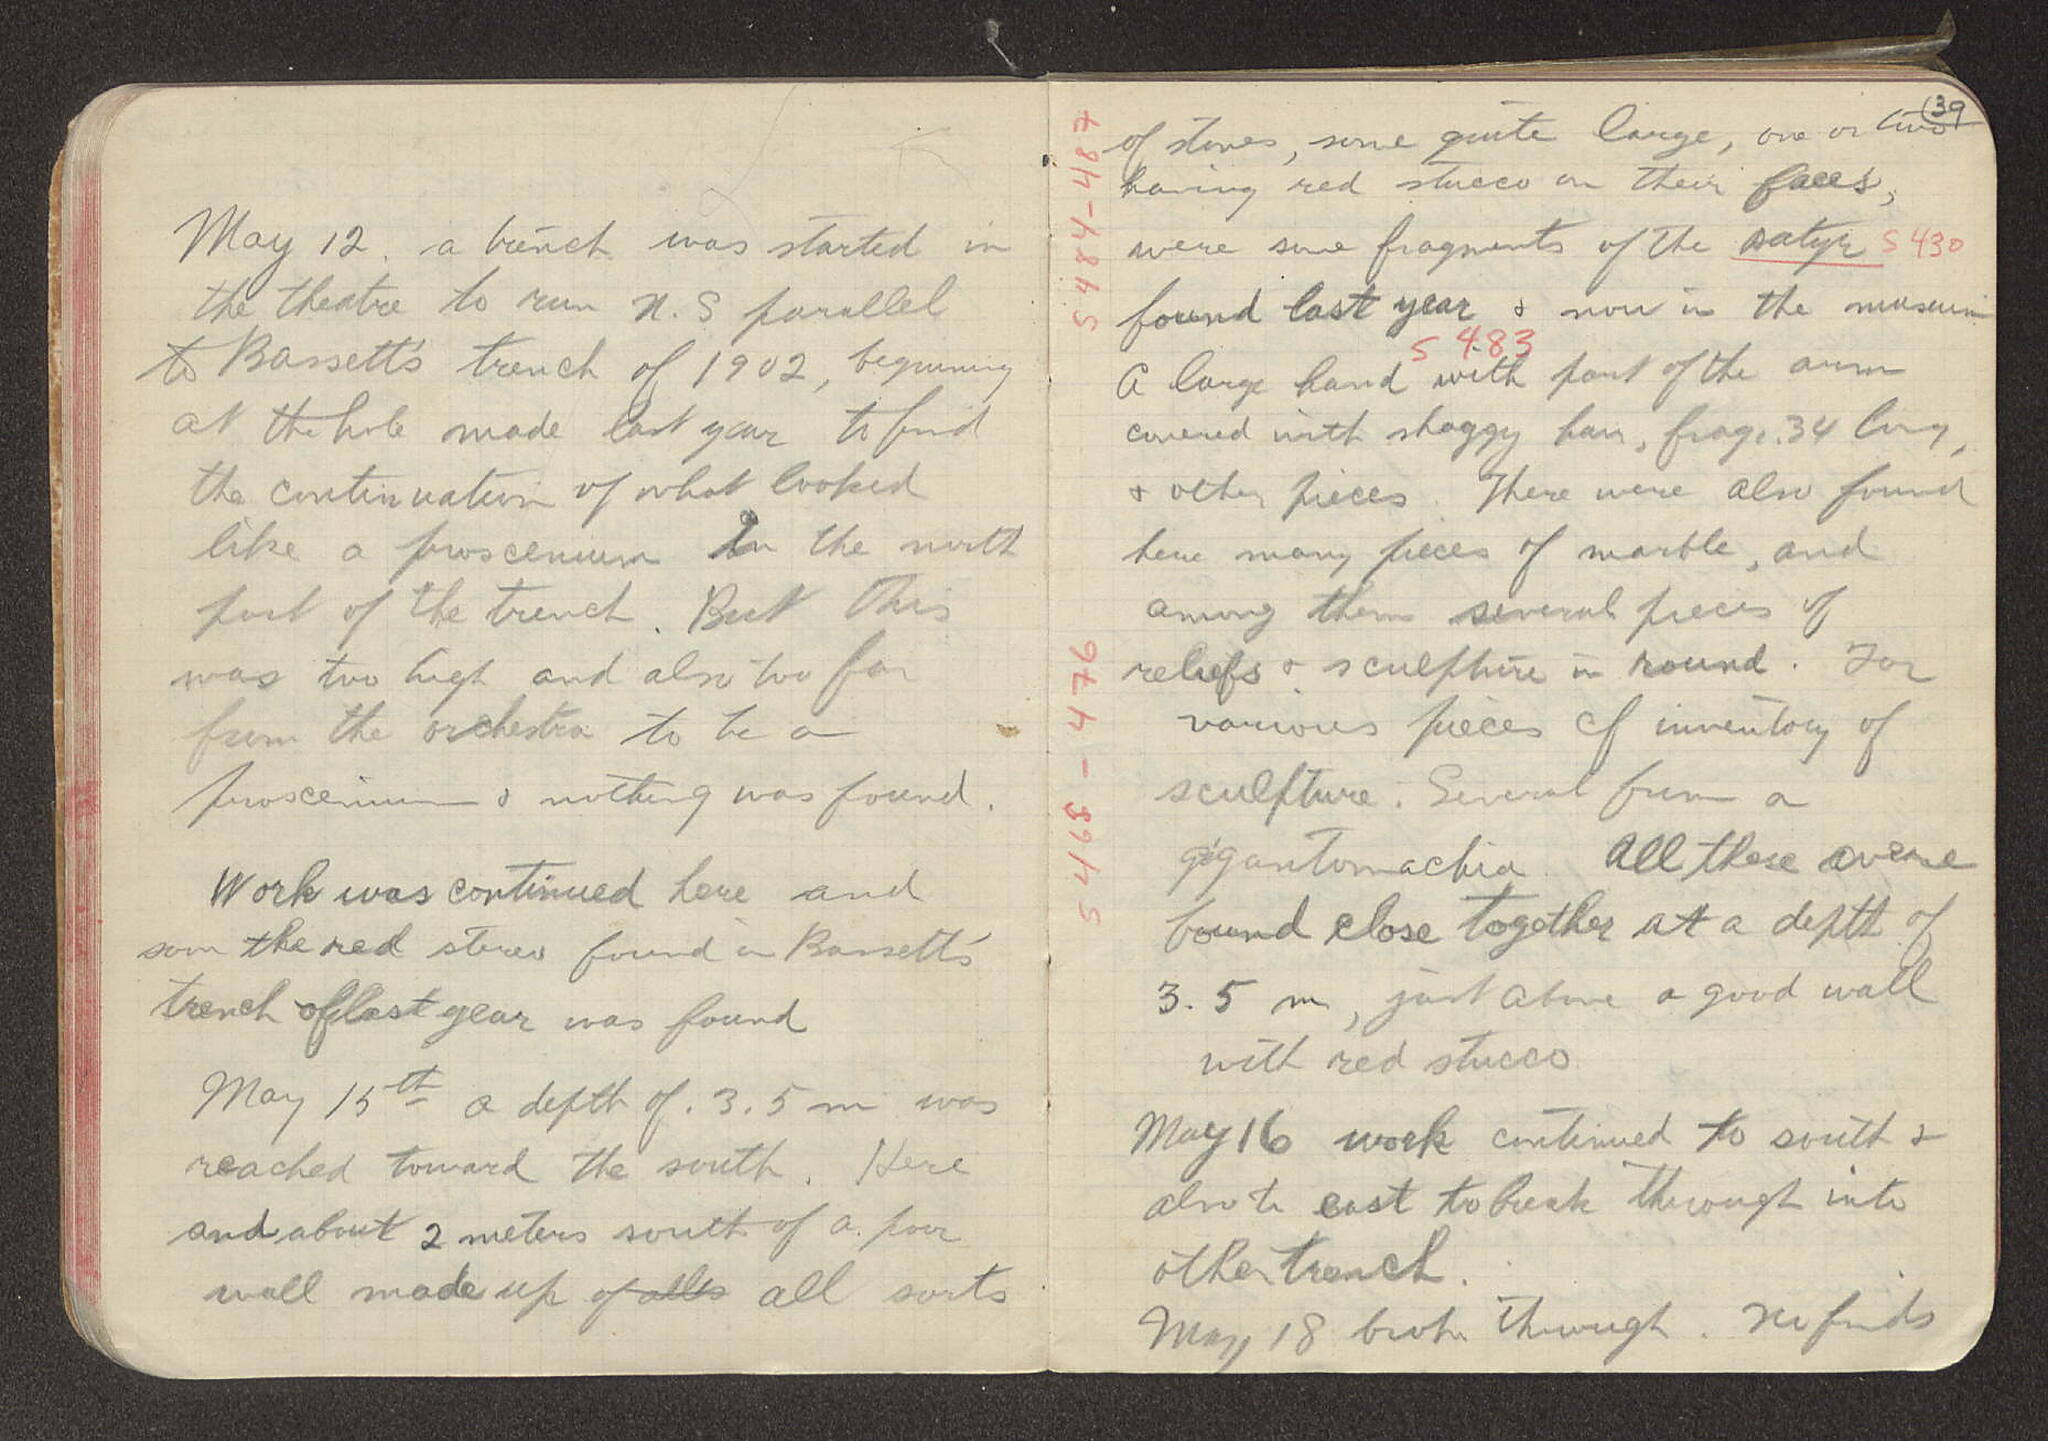 May 12. a trench was started in
the theatre to run N. S parallel
to Bassett's trench of 1902, beginning
at the hole made last year to find
the continuation of what looked
like a proscenium in the north
part of the trench. But this
was too high and also too far
from the orchestra to be a
proscenium & nothing was found.
Work was continued here and
som the red stereo found in Bassett's
trench of last year was found
May 15th a depth of. 3.5 m was
reached toward the south. Here
and about 2 meters south of a. poor
wall made up of alls all sorts
39
of stones, some quite large, one or two
having red stucco on their faces,
were some fragments of the satyr S 430
found last year & now in the museum
S 483
A large hand with part of the arm
covered with shaggy hair, frag. .34 long,
& other pieces. There were also found
here many pieces of marble, and
among them several pieces of
reliefs & sculpture in round. For
various pieces cf inventory of
sculpture. Several from a
gigantomachia. All these were
found close together at a depth of
3.5 m, just above a good wall
with red stucco
May 16 work continued to south &
also to east to break through into
other trench.
May 18 broke through. No finds
S 484-487
S 468-476